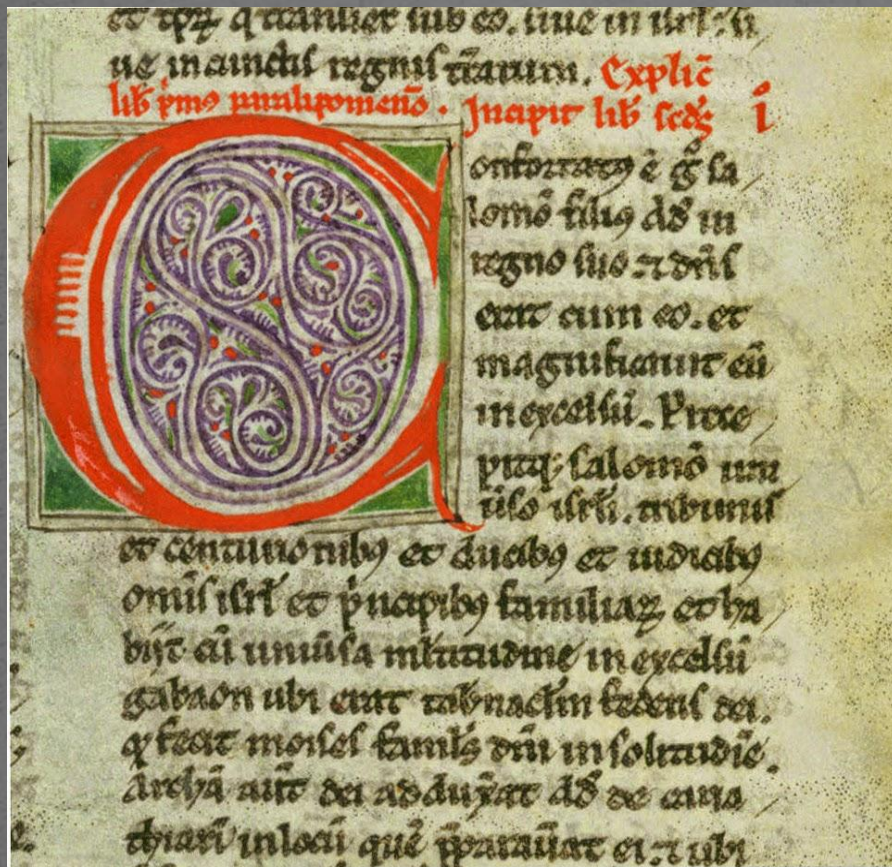 et tp̄ꝝ q̄ transier̄t sub eo. siue in isrl̄. si
ue in cunctis regnis tr̄arum. Explic̄
lib̄ pͥmꝰ paralipomenō. Incipit lib̄ sc̄ds i
Confortatꝰ ē gͦ sa
lomō filiꝰ dd̄ in
regno suo. ⁊ dn̄s
erat cum eo. et
magnificauit eū
in excelsū. Prece
pitqꝫ salomō uni
ūso isrl̄i. tribunis
et centurionibꝰ et ducibꝰ et iudicibꝰ
omīs isrl̄ et pͥncipibꝰ familiaꝝ et ha
bijt cū uniūsa ml̄titudine in excelsū
gabaon ubi erat tab̄nacl̄m federis dei.
qͦd fecit moises famul̄s dn̄i in solitudīe.
Archā aūt dei adduxat dd̄ de caria
thiarī in locū quē p̄parauat ei. ⁊ ubi